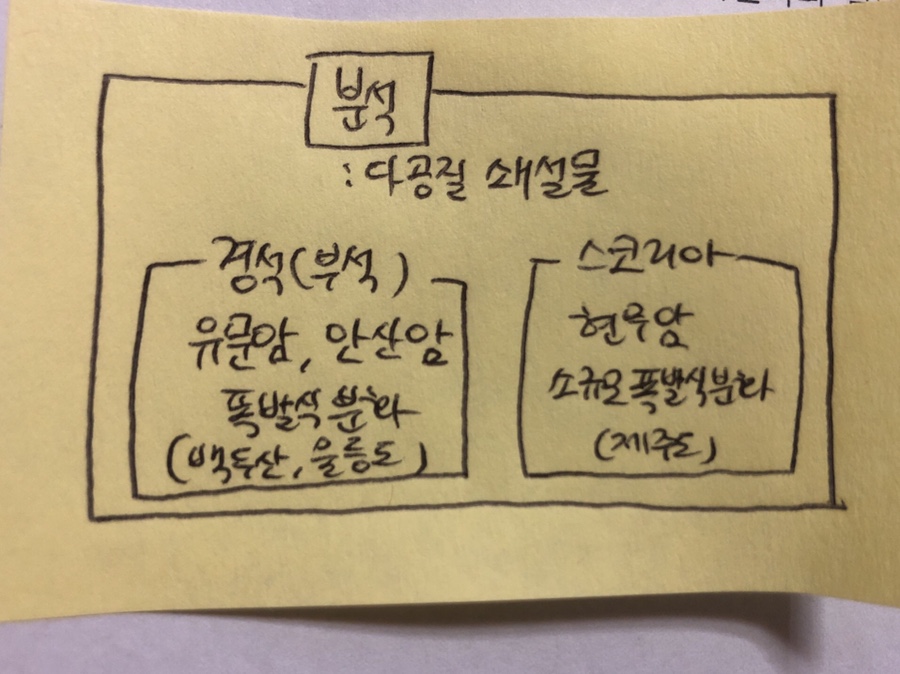 분석
: 다공질 쇄설물
경석(부석)
유문암, 안산암
폭발식 분화
(백두산, 울릉도)
스코리아
현무암
소규모 폭발식분화
(제주도)